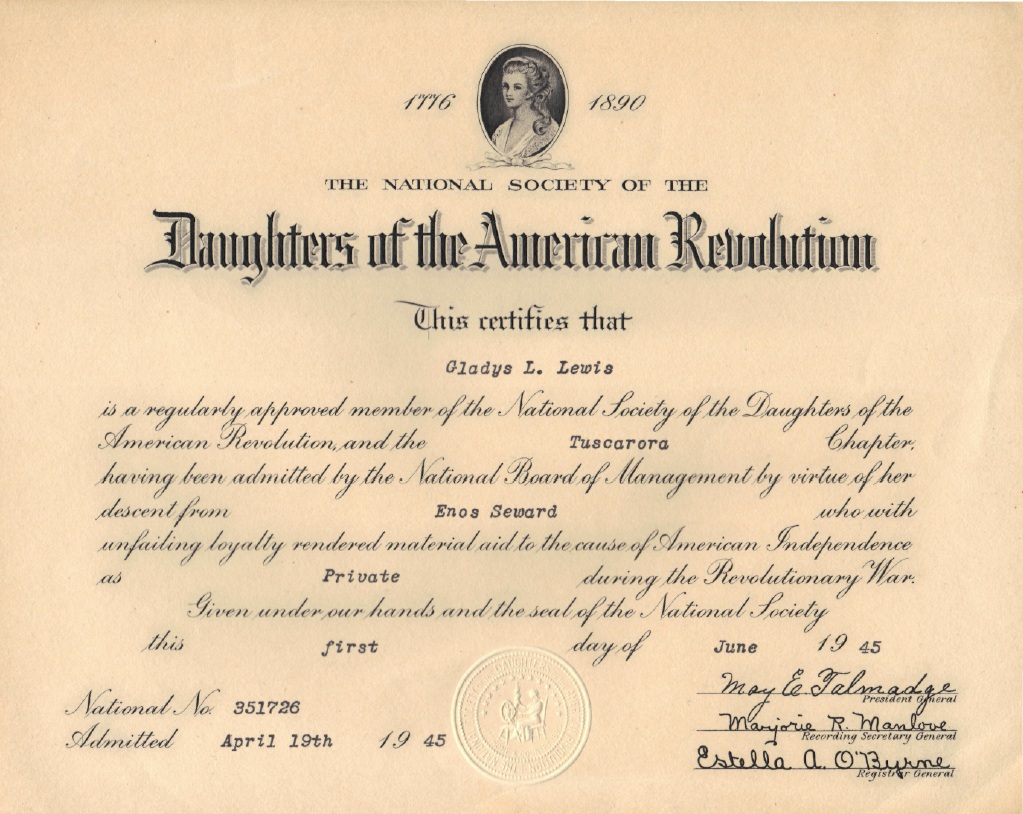 1776 1890
THE NATIONAL SOCIETY OF THE
Daughters of the American Revolution
This certifies that
Gladys L. Lewis
is a regularly approved member of the National Society of the Daughters of the
American Revolution, and the Tuscarora Chapter,
having been admitted by the National Board of Management by virtue of her
descent from Enos Seward who with
unfailing loyalty rendered material aid to the cause of American Independence
as Private during the Revolutionary War.
Given under our hands and the seal of the National Society
this first day of June 19 45
May E. Talmadge
President General
National No. 351726
Marjorie R. Manlove
Recording Secretary General
Admitted April 19th 19 45
Estella A. O'Byrne
Registrar General